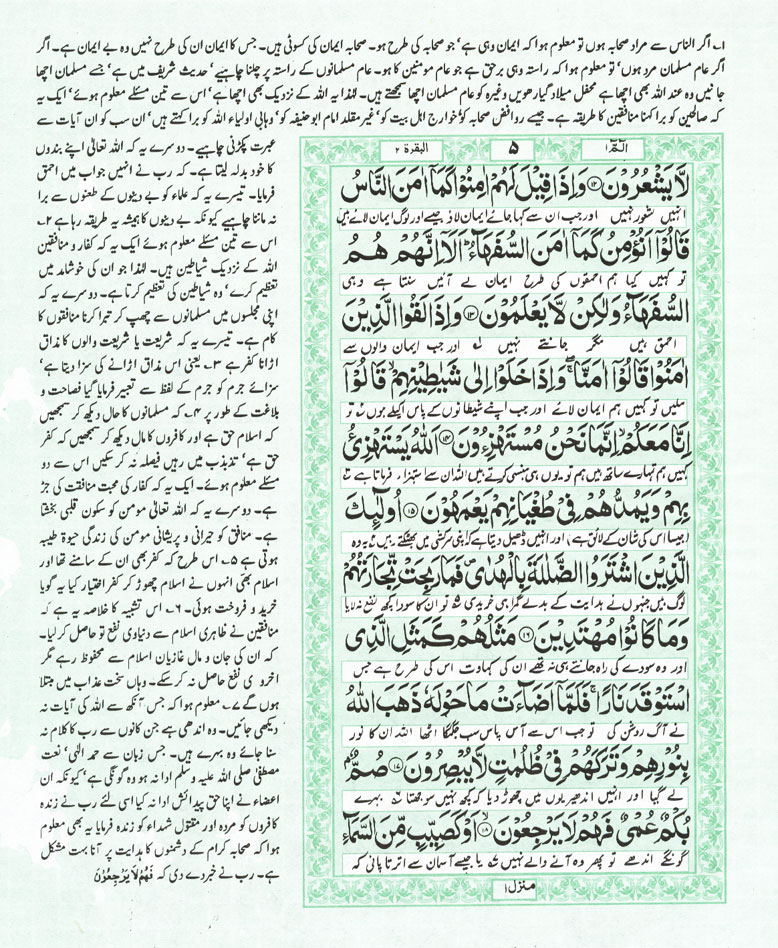 ۱؎ اگر الناس سے مراد صحابہ ہوں تو معلوم ہوا کہ ایمان وہی ہے، جو صحابہ کی طرح ہو۔ صحابہ ایمان کی کسوٹی ہیں۔ جس کا ایمان ان کی طرح نہیں وہ بے ایمان ہے۔ اگر
اگر عام مسلمان مرد ہوں، تو معلوم ہوا کہ راستہ وہی برحق ہے جو عام مومنین کا ہو۔ عام مسلمانوں کے راستہ پر چلنا چاہیے، حدیث شریف میں ہے، جسے مسلمان اچھا
جانیں وہ عند اللہ بھی اچھا ہے محفل میلاد گیارھویں وغیرہ کو عام مسلمان اچھا سمجھتے ہیں۔ لہٰذا یہ اللہ کے نزدیک بھی اچھا ہے، اس سے تین مسئلے معلوم ہوئے، ایک یہ
کہ صالحین کو برا کہنا منافقین کا طریقہ ہے۔ جیسے روافض صحابہ کو، خوارج اہل بیت کو، غیر مقلد امام ابو حنیفہ کو، وہابی اولیاء اللہ کو برا کہتے ہیں، ان سب کو ان آیات سے
عبرت پکڑنی چاہیے۔ دوسرے یہ کہ اللہ تعالیٰ اپنے بندوں
کا خود بدلہ لیتا ہے۔ کہ رب نے انہیں جواب میں احمق
فرمایا۔ تیسرے یہ کہ علماء کو بے دینوں کے طعنوں سے برا
نہ ماننا چاہیے کیونکہ بے دینوں کا ہمیشہ یہ طریقہ رہا ہے ۲؎
اس سے تین مسئلے معلوم ہوئے ایک یہ کہ کفار و منافقین
اللہ کے نزدیک شیاطین ہیں۔ لہٰذا جو ان کی خوشامد میں
تعظیم کرے، وہ شیاطین کی تعظیم کرتا ہے۔ دوسرے یہ کہ
اپنی مجلسوں میں مسلمانوں سے چھپ کر تبرا کرنا منافقوں کا
کام ہے۔ تیسرے یہ کہ شریعت یا شریعت والوں کا مذاق
اڑانا کفر ہے ۳؎ یعنی اس مذاق اڑانے کی سزا دیتا ہے،
سزائے جرم کو جرم کے لفظ سے تعبیر فرمایا گیا فصاحت و
بلاغت کے طور پر ۴؎ کہ مسلمانوں کا حال دیکھ کر سمجھیں
کہ اسلام حق ہے اور کافروں کا مال دیکھ کر سمجھیں کہ کفر
حق ہے، تذبذب میں رہیں فیصلہ نہ کر سکیں اس سے دو
مسئلے معلوم ہوئے۔ ایک یہ کہ کفار کی محبت منافقت کی جڑ
ہے۔ دوسرے یہ کہ اللہ تعالیٰ مومن کو سکون قلبی بخشتا
ہے۔ منافق کو حیرانی و پریشانی مومن کی زندگی حیوۃ طیبہ
ہوتی ہے ۵؎ اس طرح کہ کفر بھی ان کے سامنے تھا اور
اسلام بھی انہوں نے اسلام چھوڑ کر کفر اختیار کیا یہ گویا
خرید و فروخت ہوئی۔ ۶؎ اس تشبیہ کا خلاصہ یہ ہے کہ
منافقین نے ظاہری اسلام سے دنیاوی نفع تو حاصل کر لیا۔
کہ ان کی جان و مال غازیان اسلام سے محفوظ رہے مگر
اخروی نفع حاصل نہ کر سکے۔ وہاں سخت عذاب میں مبتلا
ہوں گے ۷؎ معلوم ہوا کہ جس آنکھ سے اللہ کی آیات نہ
دیکھی جائیں۔ وہ اندھی ہے جن کانوں سے رب کا کلام نہ
سنا جائے وہ بہرے ہیں۔ جس زبان سے حمد الٰہی، نعت
مصطفٰی صلی اللہ علیہ وسلم ادا نہ ہو وہ گونگی ہے، کیونکہ ان
اعضاء نے اپنا حق پیدائش ادا نہ کیا اسی لئے رب نے زندہ
کافروں کو مردہ اور مقتول شہداء کو زندہ فرمایا یہ بھی معلوم
ہوا کہ صحابہ کرام کے دشمنوں کا ہدایت پر آنا بہت مشکل
ہے۔ رب نے خبر دے دی کہ فَهُمْ لَا يَرْجِعُوْنَ
الٓمّٓ ۱
۵
البقرة ۲
لَّا يَشْعُرُوْنَ ۝۱۲ وَاِذَا قِيْلَ لَهُمْ اٰمِنُوْا كَمَاۤ اٰمَنَ النَّاسُ
انہیں شعور نہیں اور جب ان سے کہا جائے ایمان لاؤ جیسے اور لوگ ایمان لائے ہیں
قَالُوْۤا اَنُؤْمِنُ كَمَاۤ اٰمَنَ السُّفَهَآءُ ؕ اَلَاۤ اِنَّهُمْ هُمُ
تو کہیں کیا ہم احمقوں کی طرح ایمان لے آئیں سنتا ہے وہی
السُّفَهَآءُ وَلٰكِنْ لَّا يَعْلَمُوْنَ ۝۱۳ وَاِذَا لَقُوا الَّذِيْنَ
احمق ہیں مگر جانتے نہیں اور جب ایمان والوں سے
اٰمَنُوْا قَالُوْۤا اٰمَنَّا ۚۖ وَاِذَا خَلَوْا اِلٰى شَيٰطِيْنِهِمْ ۙ قَالُوْۤا
ملیں تو کہیں ہم ایمان لائے اور جب اپنے شیطانوں کے پاس اکیلے ہوں تو
اِنَّا مَعَكُمْ ۙ اِنَّمَا نَحْنُ مُسْتَهْزِءُوْنَ ۝۱۴ اَللّٰهُ يَسْتَهْزِئُ
کہیں ہم تمہارے ساتھ ہیں ہم تو یوں ہی ہنسی کرتے ہیں اللہ ان سے استہزاء فرماتا ہے
بِهِمْ وَيَمُدُّهُمْ فِيْ طُغْيَانِهِمْ يَعْمَهُوْنَ ۝۱۵ اُولٰٓئِكَ
جیسا اس کی شان کے لائق ہے، اور انہیں ڈھیل دیتا ہے کہ اپنی سرکشی میں بھٹکتے ہیں یہ وہ
الَّذِيْنَ اشْتَرَوُا الضَّلٰلَةَ بِالْهُدٰى ۪ فَمَا رَبِحَتْ تِّجَارَتُهُمْ
لوگ ہیں جنہوں نے ہدایت کے بدلے گمراہی خریدی تو ان کا سودا کچھ نفع نہ لایا
وَمَا كَانُوْا مُهْتَدِيْنَ ۝۱۶ مَثَلُهُمْ كَمَثَلِ الَّذِى
اور وہ سودے کی راہ جانتے ہی نہ تھے ان کی کہاوت اس کی طرح ہے جس
اسْتَوْقَدَ نَارًا ۚ فَلَمَّاۤ اَضَآءَتْ مَا حَوْلَهٗ ذَهَبَ اللّٰهُ
نے آگ روشن کی تو جب اس سے آس پاس سب جگمگا اٹھا اللہ ان کا نور
بِنُوْرِهِمْ وَتَرَكَهُمْ فِيْ ظُلُمٰتٍ لَّا يُبْصِرُوْنَ ۝۱۷ صُمٌّۢ
لے گیا اور انہیں اندھیریوں میں چھوڑ دیا کہ کچھ نہیں سوجھتا بہرے
بُكْمٌ عُمْىٌ فَهُمْ لَا يَرْجِعُوْنَ ۝۱۸ اَوْ كَصَيِّبٍ مِّنَ السَّمَآءِ
گونگے اندھے تو پھر وہ آنے والے نہیں یا جیسے آسمان سے اترتا پانی کہ
منزل ۱